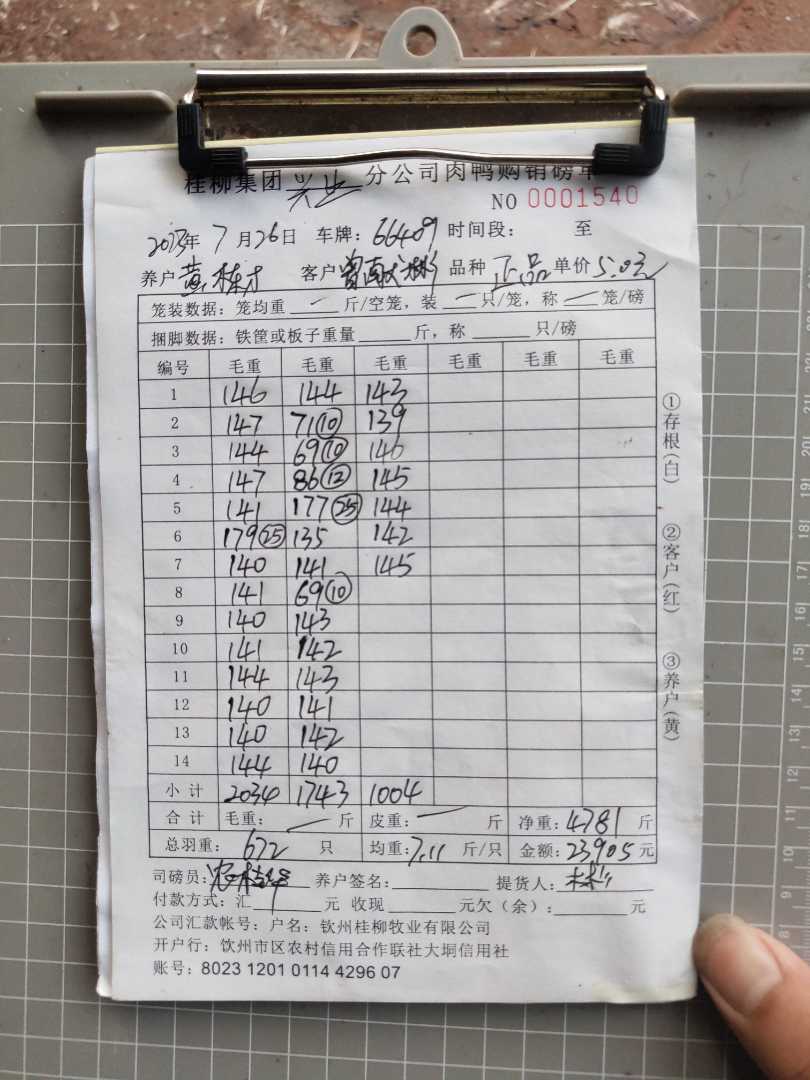 桂柳集团 兴业 分公司肉鸭购销磅单
NO 0001540
2023年 7 月 26 日 车牌: 66409 时间段: 至
养户 黄栋才 客户 品种 正品 单价 5.0元
笼装数据: 笼均重 — 斤/空笼, 装 — 只/笼, 称 — 笼/磅
捆脚数据: 铁筐或板子重量 斤, 称 只/磅
编号 毛重 毛重 毛重 毛重 毛重 毛重
1 146 144 143
2 147 71⑩ 139
3 144 69⑩ 146
4 147 86⑫ 145
5 141 177㉕ 144
6 179㉕ 135 142
7 140 141 145
8 141 69⑩
9 140 143
10 141 142
11 144 143
12 140 141
13 140 142
14 144 140
小计 2034 1743 1004
合计 毛重: — 斤 皮重: — 斤 净重: 4781 斤
总羽重: 672 只 均重: 7.11 斤/只 金额: 23,905 元
司磅员: 养户签名: 提货人:
付款方式: 汇 元 收现 元欠(余): 元
公司汇款帐号: 户名: 钦州桂柳牧业有限公司
开户行: 钦州市区农村信用合作联社大垌信用社
账号: 8023 1201 0114 4296 07
①存根(白)
②客户(红)
③养户(黄)